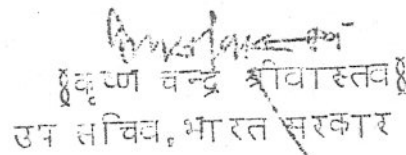 (कृष्ण चन्द्र श्रीवास्तव)
उप सचिव, भारत सरकार